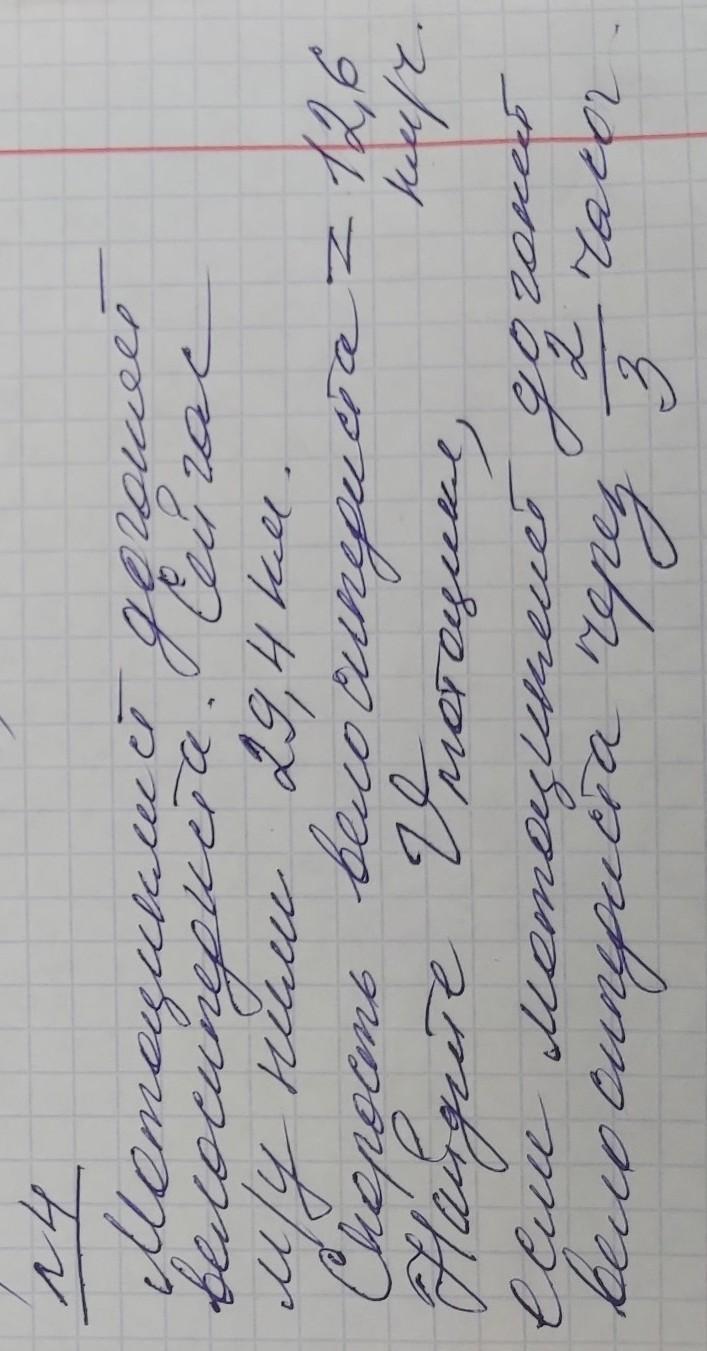 №4
Мотоциклист догоняет
велосипедиста. Сейчас
м/у ними 29,4 км.
Скорость велосипедиста = 12,6
км/ч.
Найдите V мотоцикл,
если мотоциклист догонит
велосипедиста через 2/3 часа.